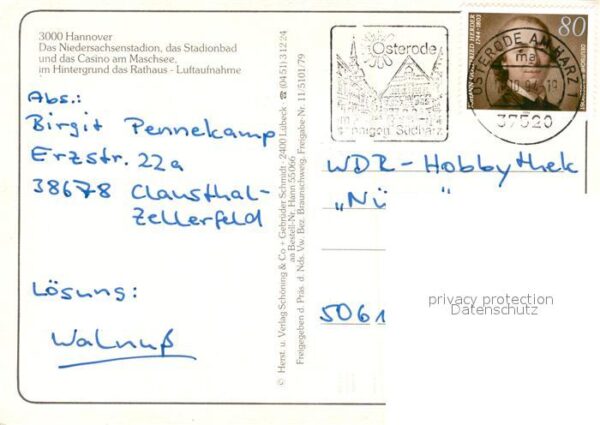 3000 Hannover
Das Niedersachsenstadion, das Stadionbad
und das Casino am Maschsee,
im Hintergrund das Rathaus - Luftaufnahme
Abs.:
Birgit Pennekamp
Erzstr. 22a
38678 Clausthal-
Zellerfeld
Lösung:
Walnuß
© Herst. u. Verlag Schöning & Co + Gebrüder Schmidt · 2400 Lübeck ☎ (04 51) 3 12 24
aa Bestell-Nr. Hann 55 066
Freigegeben d. Präs. d. Nds. Vw. Bez. Braunschweig, Freigabe-Nr. 11/5101/79
Osterode
sonnigen Südharz
80
JOHANN GOTTFRIED HERDER
1744-1803
OSTERODE AM HARZ 1
ma
37520
WDR-Hobbythek
„Nü
5061
privacy protection
Datenschutz